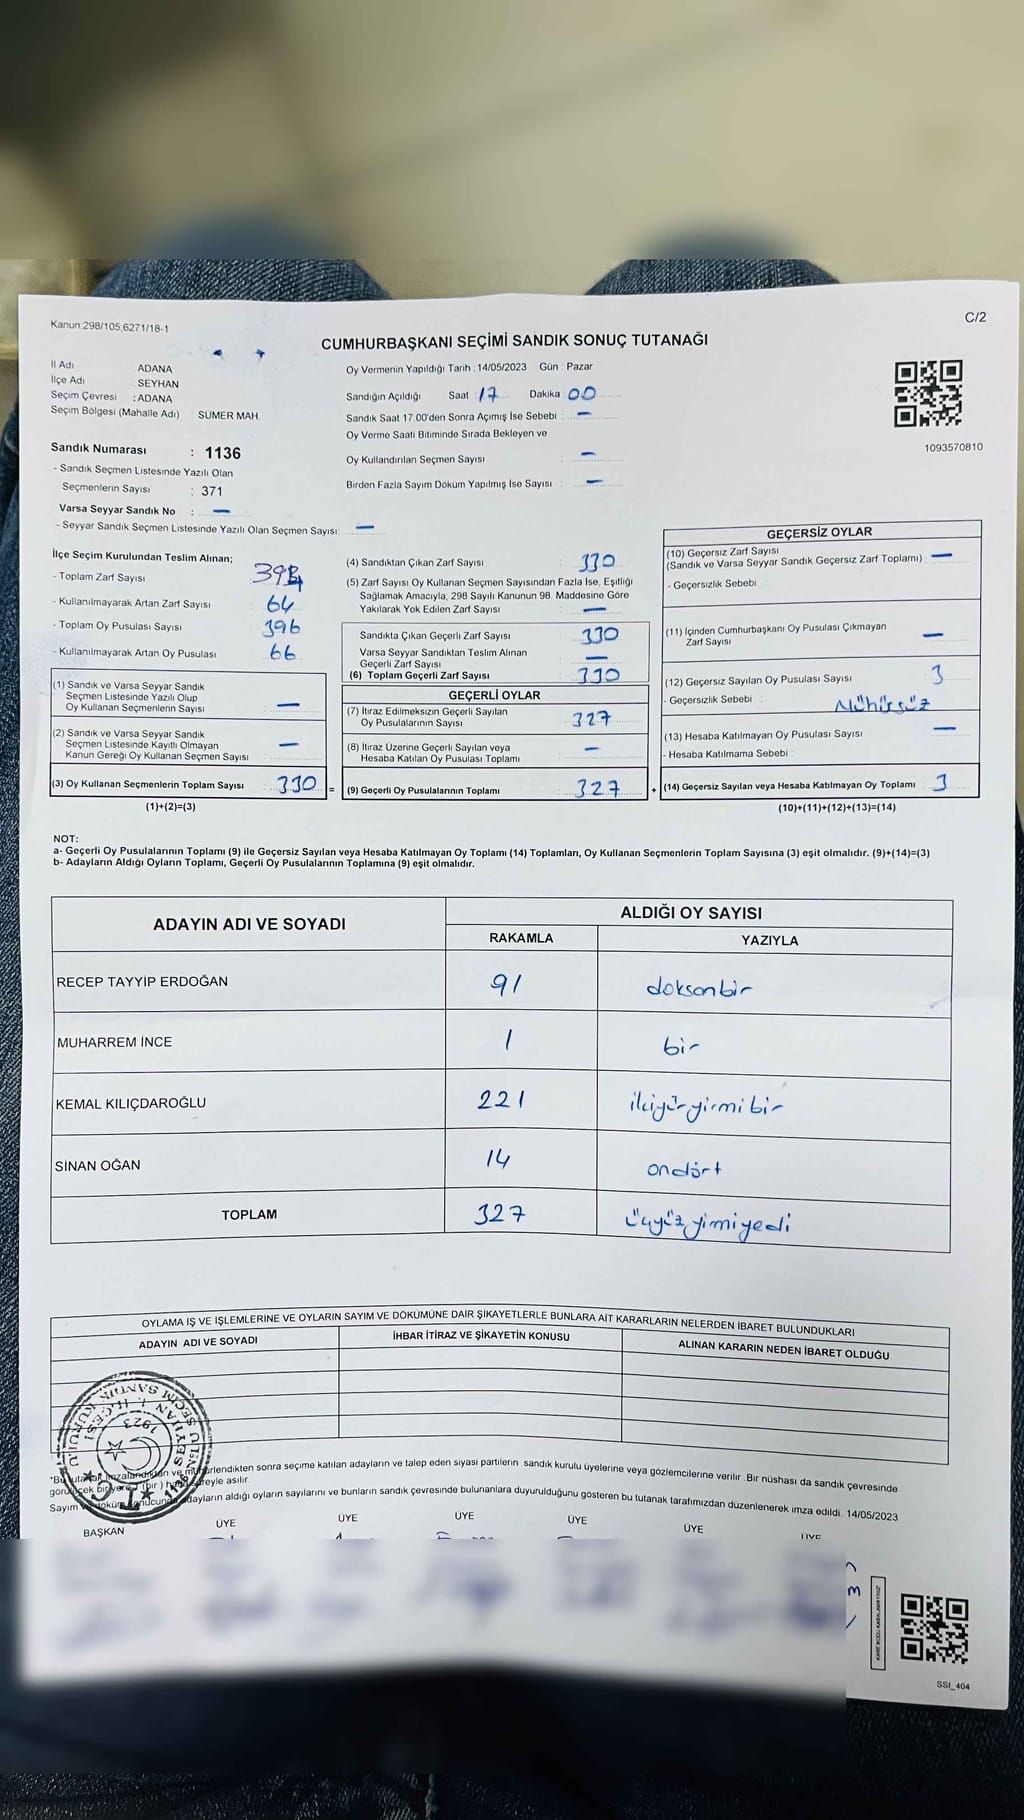 Kanun:298/105,6271/18-1
C/2
CUMHURBAŞKANI SEÇİMİ SANDIK SONUÇ TUTANAĞI
İl Adı : ADANA
İlçe Adı : SEYHAN
Seçim Çevresi : ADANA
Seçim Bölgesi (Mahalle Adı) : SÜMER MAH.
Sandık Numarası : 1136
- Sandık Seçmen Listesinde Yazılı Olan
Seçmenlerin Sayısı : 371
Varsa Seyyar Sandık No : —
- Seyyar Sandık Seçmen Listesinde Yazılı Olan Seçmen Sayısı: —
Oy Vermenin Yapıldığı Tarih : 14/05/2023 Gün : Pazar
Sandığın Açıldığı Saat : 17 Dakika : 00
Sandık Saat 17.00'den Sonra Açımış İse Sebebi : —
Oy Verme Saati Bitiminde Sırada Bekleyen ve
Oy Kullandırılan Seçmen Sayısı : —
Birden Fazla Sayım Döküm Yapılmış İse Sayısı : —
1093570810
İlçe Seçim Kurulundan Teslim Alınan;
- Toplam Zarf Sayısı : 394
- Kullanılmayarak Artan Zarf Sayısı : 64
- Toplam Oy Pusulası Sayısı : 396
- Kullanılmayarak Artan Oy Pusulası : 66
(1) Sandık ve Varsa Seyyar Sandık
Seçmen Listesinde Yazılı Olup
Oy Kullanan Seçmenlerin Sayısı : —
(2) Sandık ve Varsa Seyyar Sandık
Seçmen Listesinde Kayıtlı Olmayan
Kanun Gereği Oy Kullanan Seçmen Sayısı : —
(3) Oy Kullanan Seçmenlerin Toplam Sayısı : 330 =
(1)+(2)=(3)
(4) Sandıktan Çıkan Zarf Sayısı : 330
(5) Zarf Sayısı Oy Kullanan Seçmen Sayısından Fazla İse, Eşitliği
Sağlamak Amacıyla, 298 Sayılı Kanunun 98. Maddesine Göre
Yakılarak Yok Edilen Zarf Sayısı : —
Sandıkta Çıkan Geçerli Zarf Sayısı : 330
Varsa Seyyar Sandıktan Teslim Alınan
Geçerli Zarf Sayısı : —
(6) Toplam Geçerli Zarf Sayısı : 330
GEÇERLİ OYLAR
(7) İtiraz Edilmeksizin Geçerli Sayılan
Oy Pusulalarının Sayısı : 327
(8) İtiraz Üzerine Geçerli Sayılan veya
Hesaba Katılan Oy Pusulası Toplamı : —
(9) Geçerli Oy Pusulalarının Toplamı : 327 +
GEÇERSİZ OYLAR
(10) Geçersiz Zarf Sayısı
(Sandık ve Varsa Seyyar Sandık Geçersiz Zarf Toplamı) : —
- Geçersizlik Sebebi :
(11) İçinden Cumhurbaşkanı Oy Pusulası Çıkmayan
Zarf Sayısı : —
(12) Geçersiz Sayılan Oy Pusulası Sayısı : 3
- Geçersizlik Sebebi : Mühürsüz
(13) Hesaba Katılmayan Oy Pusulası Sayısı : —
- Hesaba Katılmama Sebebi :
(14) Geçersiz Sayılan veya Hesaba Katılmayan Oy Toplamı : 3
(10)+(11)+(12)+(13)=(14)
NOT:
a- Geçerli Oy Pusulalarının Toplamı (9) ile Geçersiz Sayılan veya Hesaba Katılmayan Oy Toplamı (14) Toplamları, Oy Kullanan Seçmenlerin Toplam Sayısına (3) eşit olmalıdır. (9)+(14)=(3)
b- Adayların Aldığı Oyların Toplamı, Geçerli Oy Pusulalarının Toplamına (9) eşit olmalıdır.
ADAYIN ADI VE SOYADI ALDIĞI OY SAYISI
RAKAMLA YAZIYLA
RECEP TAYYİP ERDOĞAN 91 doksanbir
MUHARREM İNCE 1 bir
KEMAL KILIÇDAROĞLU 221 ikiyüzyirmibir
SİNAN OĞAN 14 ondört
TOPLAM 327 üçyüzyimiyedi
OYLAMA İŞ VE İŞLEMLERİNE VE OYLARIN SAYIM VE DÖKÜMÜNE DAİR ŞİKAYETLERLE BUNLARA AİT KARARLARIN NELERDEN İBARET BULUNDUKLARI
ADAYIN ADI VE SOYADI İHBAR İTİRAZ VE ŞİKAYETİN KONUSU ALINAN KARARIN NEDEN İBARET OLDUĞU
SEYHAN 1. İLÇESİ
SEÇİM SANDIK KURULU
1923
T.C.
*Bu tutanak imzalandıktan ve mühürlendikten sonra seçime katılan adayların ve talep eden siyasi partilerin sandık kurulu üyelerine veya gözlemcilerine verilir. Bir nüshası da sandık çevresinde
görülecek bir yere 1 (bir) hafta süreyle asılır.
Sayım ve döküm sonucunda adayların aldığı oyların sayılarını ve bunların sandık çevresinde bulunanlara duyurulduğunu gösteren bu tutanak tarafımızdan düzenlenerek imza edildi. 14/05/2023
BAŞKAN ÜYE ÜYE ÜYE ÜYE ÜYE ÜYE
SSI_404